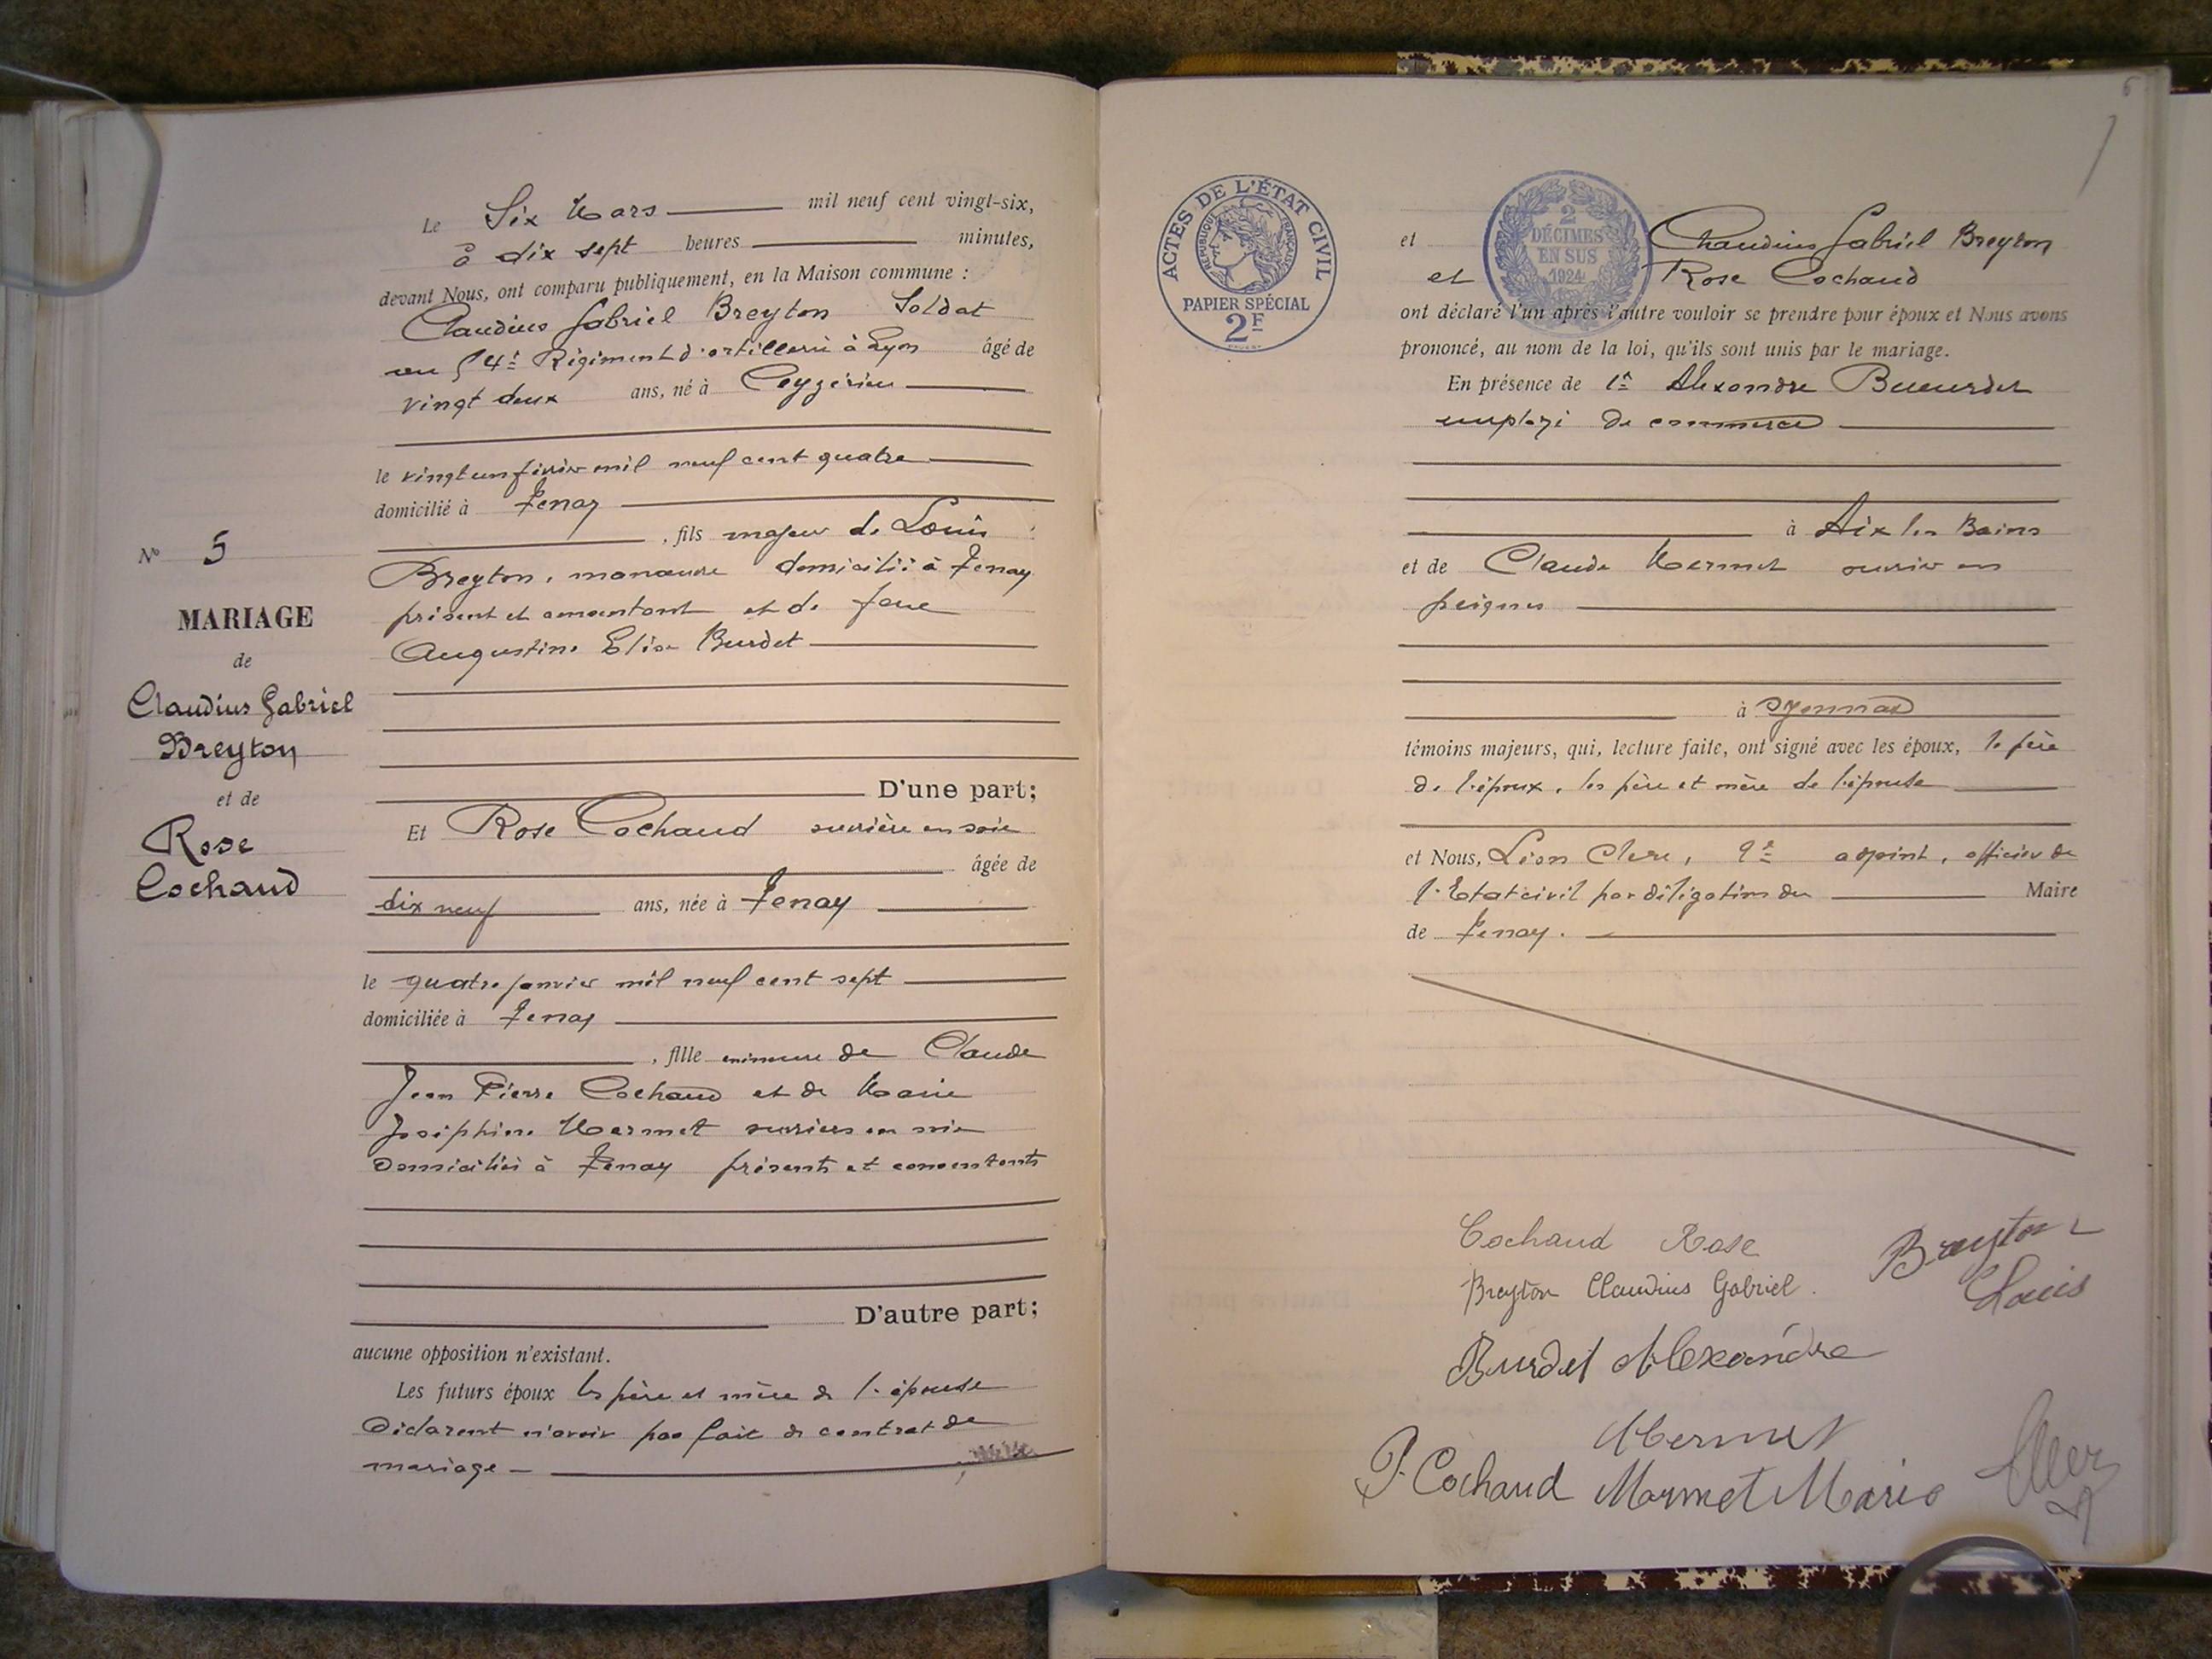 Le Six Mars mil neuf cent vingt-six,
à dix sept heures minutes,
devant Nous, ont comparu publiquement, en la Maison commune :
Claudius Gabriel Breyton Soldat
au 54e Régiment d'artillerie à Lyon âgé de
vingt deux ans, né à Ceyzérieu
le vingt un février mil neuf cent quatre
domicilié à Tenay
, fils majeur de Louis
Breyton, manœuvre domicilié à Tenay
présent et consentant et de feue
Augustine Elisa Burdet
D'une part;
Et Rose Cochaud ouvrière en soie
âgée de
dix neuf ans, née à Tenay
le quatre janvier mil neuf cent sept
domiciliée à Tenay
, fille mineure de Claude
Jean Pierre Cochaud et de Marie
Joséphine Mermet ouvriers en soie
domiciliés à Tenay présents et consentants
D'autre part;
aucune opposition n'existant.
Les futurs époux les père et mère de l'épouse
déclarent n'avoir pas fait de contrat de
mariage
No 5
MARIAGE
de
Claudius Gabriel
Breyton
et de
Rose
Cochaud
6
ACTES DE L'ÉTAT CIVIL
RÉPUBLIQUE FRANÇAISE
PAPIER SPÉCIAL
2F
2
DÉCIMES
EN SUS
1924
et Claudius Gabriel Breyton
et Rose Cochaud
ont déclaré l'un après l'autre vouloir se prendre pour époux et Nous avons
prononcé, au nom de la loi, qu'ils sont unis par le mariage.
En présence de Alexandre
employé de commerce
à Aix les Bains
et de Claude Mermet ouvrier en
peignes
à Oyonnax
témoins majeurs, qui, lecture faite, ont signé avec les époux, le père
de l'époux, les père et mère de l'épouse
et Nous, Léon Clerc, adjoint, officier de
l'Etat civil par délégation du Maire
de Tenay.
Cochaud Rose
Breyton Louis
Breyton Claudius Gabriel.
Burdet Alexandre
Mermet
P. Cochaud Mermet Marie